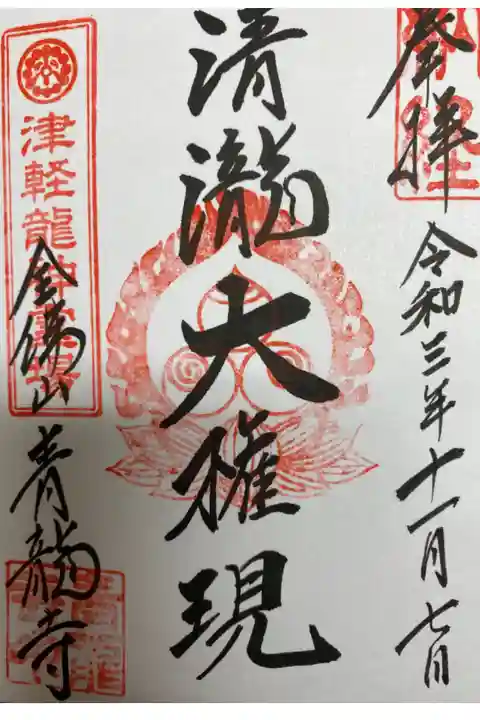 奉拝
令和三年十一月七日
清瀧大権現
津軽龍神霊場
青龍寺